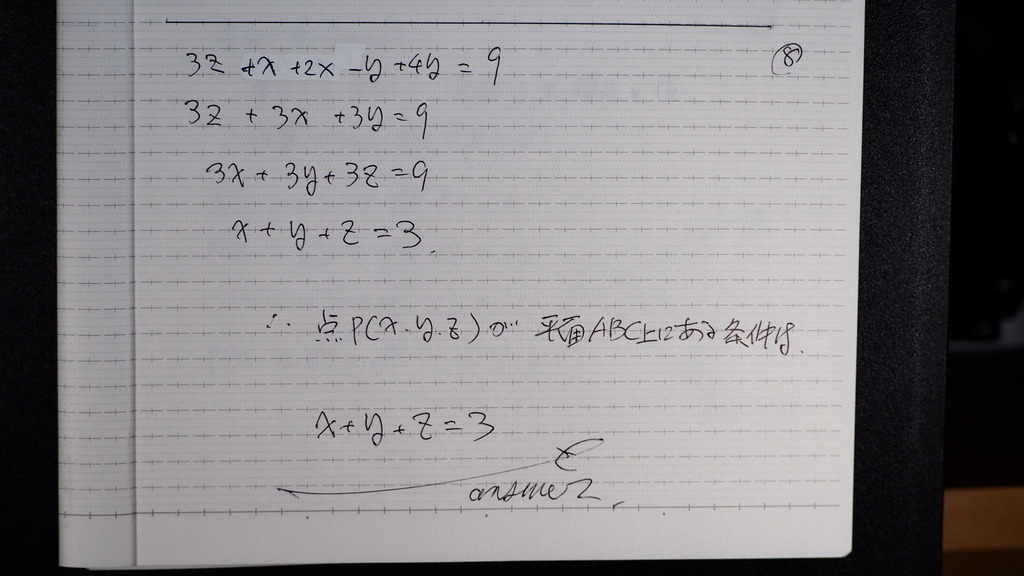 ⑧
3z +x +2x -y +4y = 9
3z + 3x +3y = 9
3x + 3y + 3z = 9
x + y + z = 3.
∴ 点P(x.y.z)が 平面ABC上にある条件は.
x + y + z = 3
answer.